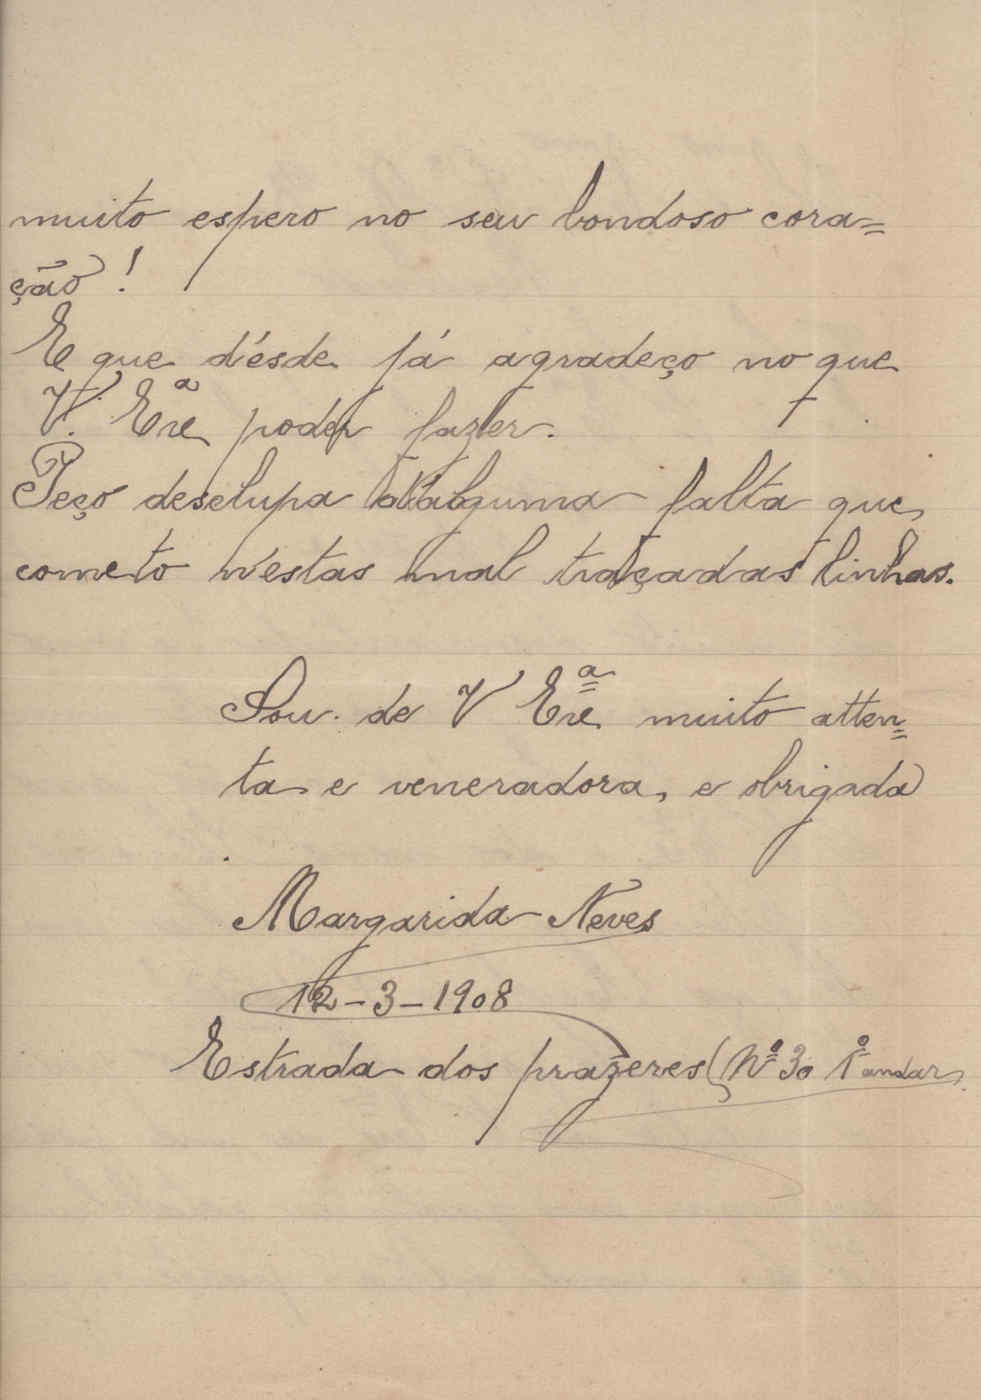 muito espero no seu bondoso cora=
ção !
E que d'ésde já agradeço no que
V. Exª poder fazer.
Peço desclupa d'alguma falta que
cometo n'estas mal traçadas linhas.
Sou de V Exª muito atten=
ta e veneradora, e obrigada
Margarida Neves
12-3-1908
Estrada dos prazeres Nº 30 1º andar